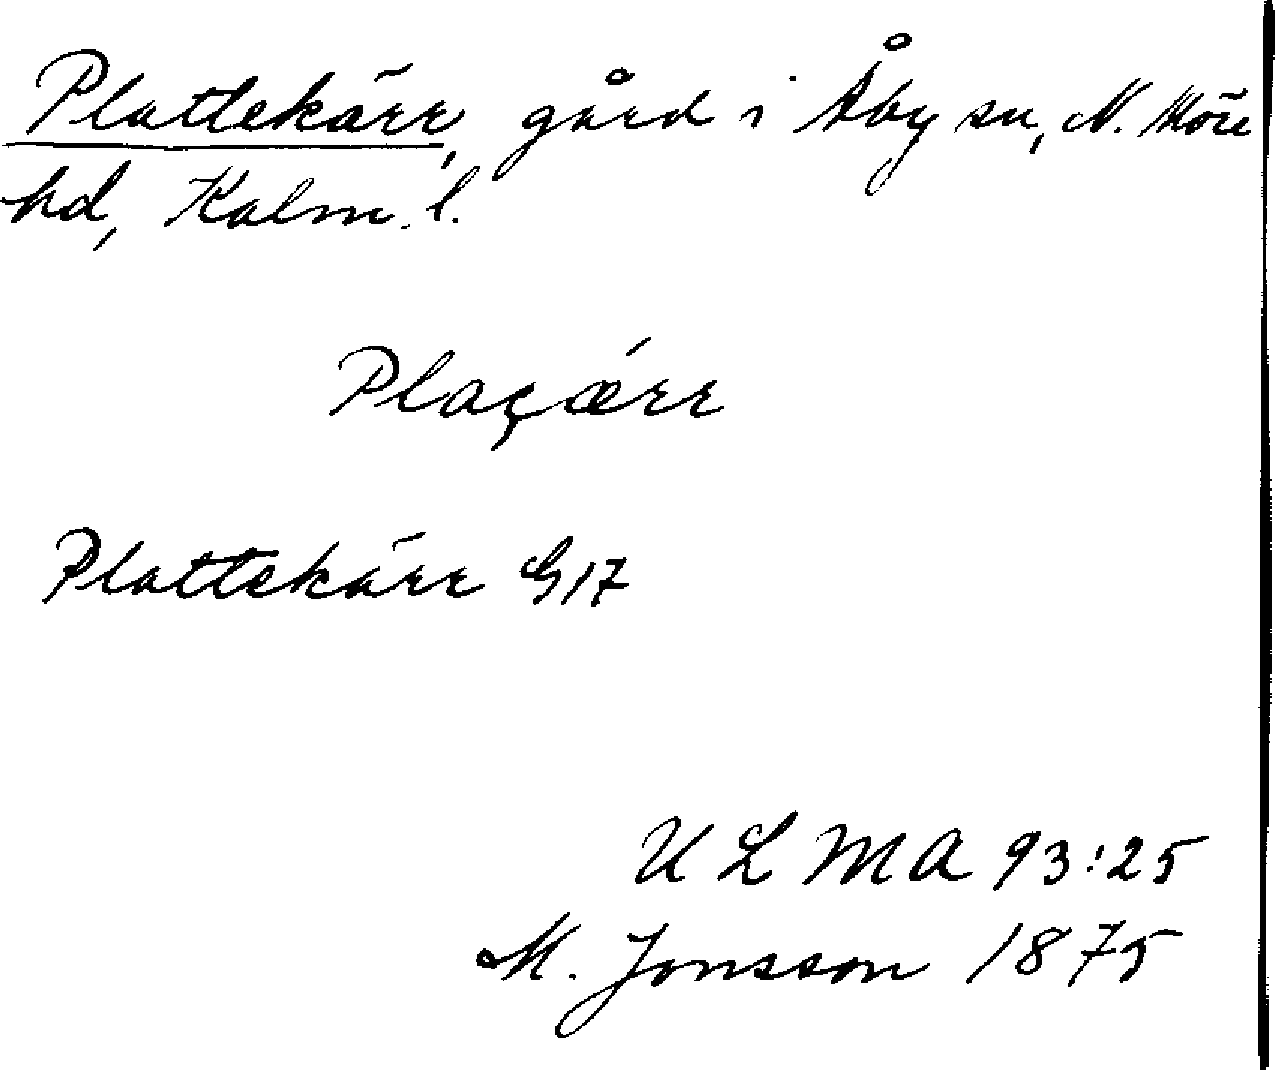 Plattekärr, gård i Åby sn, N. Möre
hd, Kalm. l.
Plaçǽrr
Plattekärr G17
ULMA 93:25
M. Jonsson 1875